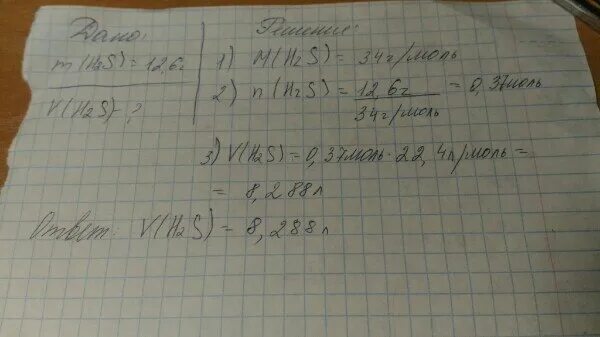 Дано:
m(H2S) = 12,6г
V(H2S) - ?
Решение:
1) M(H2S) = 34г/моль
2) n(H2S) = 12,6г / 34г/моль = 0,37моль
3) V(H2S) = 0,37моль · 22,4л/моль =
= 8,288л
Ответ: V(H2S) = 8,288л